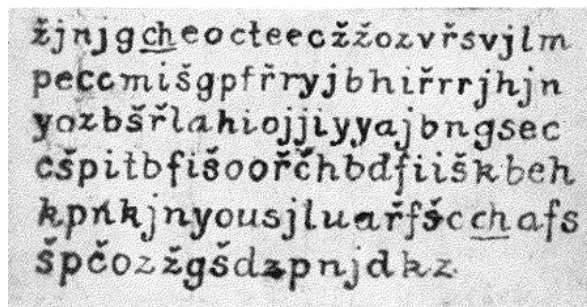 žjnjgcheocteecžžozvřsvjlm
peccmišgpfřryjbhiřrrjhjn
yozbšřlahiojjiyyajbngsec
cšpitbfišoořčhbdfiiškbeh
kpnkjnyousjluařfšcchafs
špčozžgšdzpnjdkz